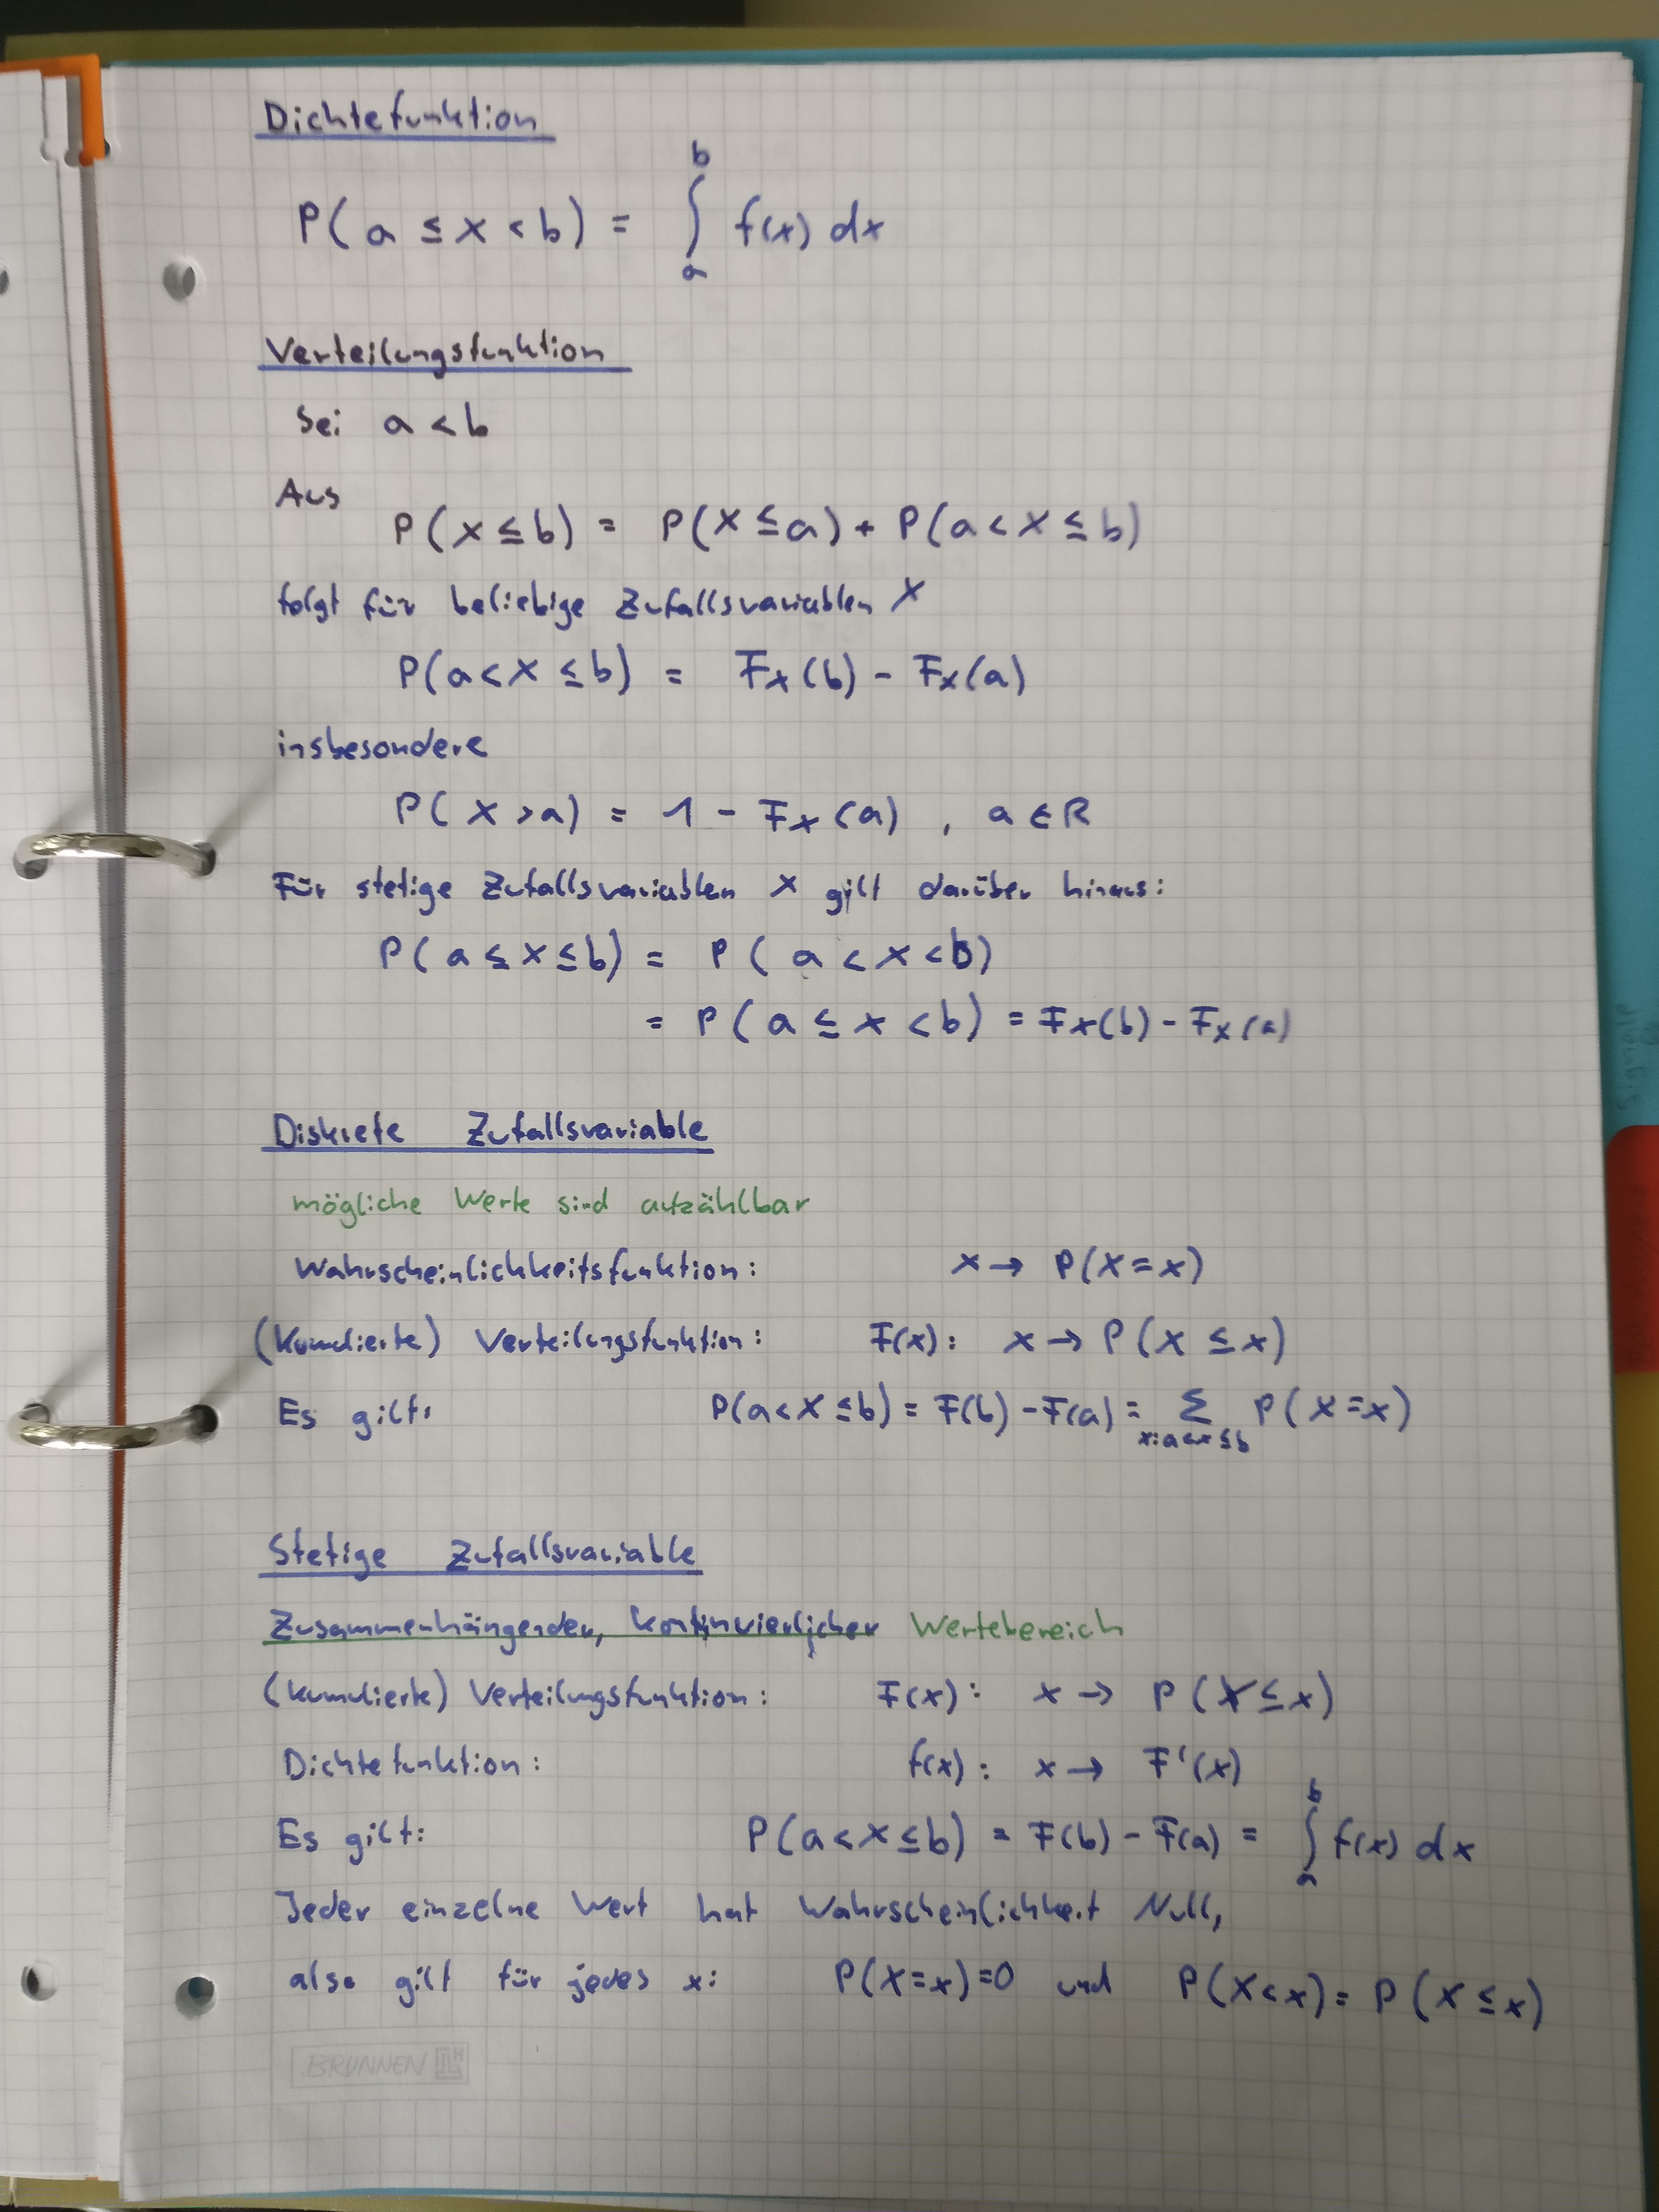 Dichtefunktion
P( a ≤ X < b ) = ∫_a^b f(x) dx
Verteilungsfunktion
Sei a < b
Aus
P(X ≤ b) = P(X ≤ a) + P(a < X ≤ b)
folgt für beliebige Zufallsvariablen X
P(a < X ≤ b) = F_X(b) - F_X(a)
insbesondere
P( X > a) = 1 - F_X(a) , a ∈ R
Für stetige Zufallsvariablen X gilt darüber hinaus:
P( a ≤ X ≤ b) = P ( a < X < b)
= P ( a ≤ X < b) = F_X(b) - F_X(a)
Diskrete Zufallsvariable
mögliche Werte sind aufzählbar
Wahrscheinlichkeitsfunktion: x → P(X = x)
(Kumulierte) Verteilungsfunktion: F(x): x → P(X ≤ x)
Es gilt: P(a < X ≤ b) = F(b) - F(a) = Σ_{x: a < x ≤ b} P(X = x)
Stetige Zufallsvariable
Zusammenhängender, kontinuierlicher Wertebereich
(kumulierte) Verteilungsfunktion: F(x): x → P(X ≤ x)
Dichtefunktion: f(x): x → F'(x)
Es gilt: P(a < X ≤ b) = F(b) - F(a) = ∫_a^b f(x) dx
Jeder einzelne Wert hat Wahrscheinlichkeit Null,
also gilt für jedes x: P(X = x) = 0 und P(X < x) = P(X ≤ x)
BRUNNEN